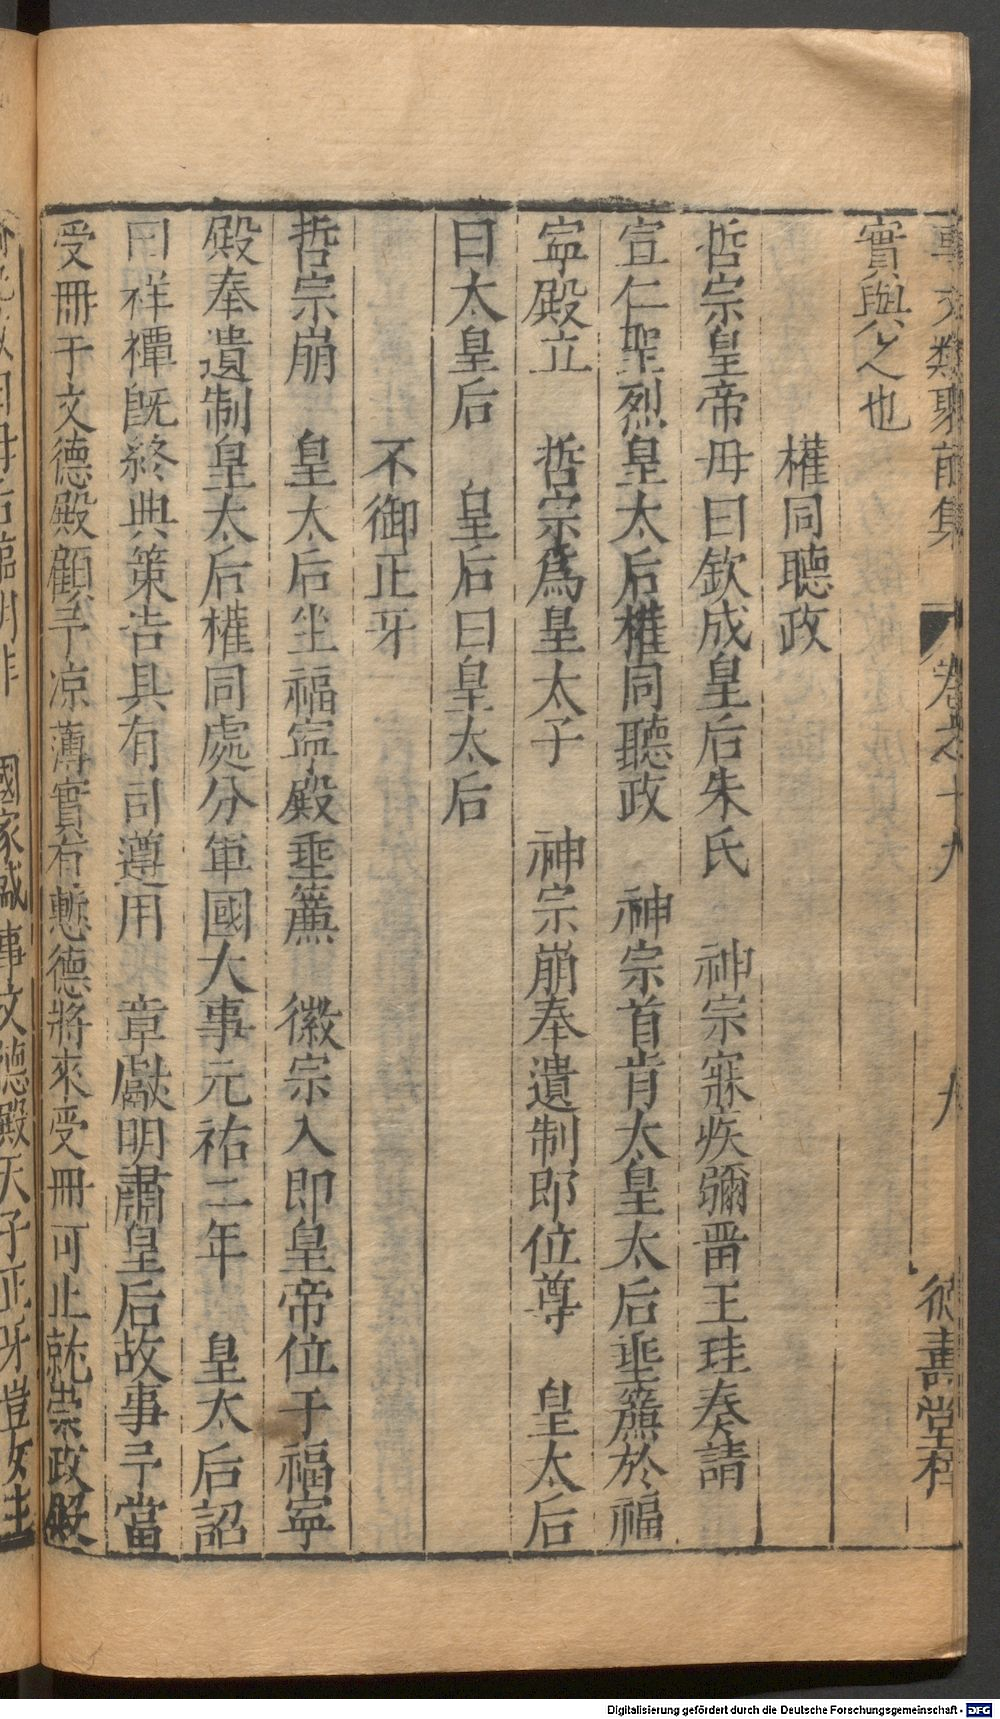 事文類聚前集 卷之十九 九
實與公之也
權同聽政
哲宗皇帝母曰欽成皇后朱氏 神宗寢疾彌畱王珪奏請
宣仁聖烈皇太后權同聽政 神宗首肯太皇太后垂簾於福
寧殿立 哲宗爲皇太子 神宗崩奉遺制即位尊 皇太后
曰太皇后 皇后曰皇太后
不御正牙
哲宗崩 皇太后坐福寧殿垂簾 徽宗入即皇帝位于福寧
殿奉遺制皇太后權同處分軍國大事元祐二年 皇太后詔
曰祥禫旣終典策告具有司遵用 章獻明肅皇后故事予當
受冊于文德殿顧予凉薄實有慙德將來受冊可止就崇政殿
國家感事文德殿天子正牙豈女主
Digitalisierung gefördert durch die Deutsche Forschungsgemeinschaft - DFG